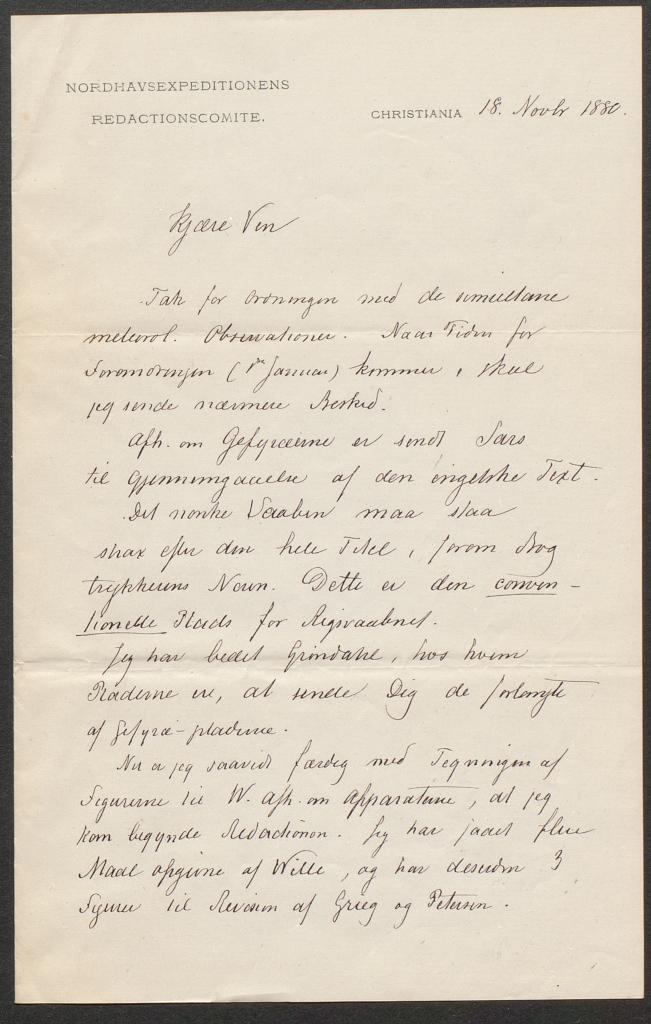 NORDHAVSEXPEDITIONENS
REDACTIONSCOMITE.
CHRISTIANIA 18. Novbr 1880.
Kjære Ven
Tak for Ordningen med de simultane
meteorol. Observationer. Naar Tiden for
Forandringen (1ste Januar) kommer, skal
jeg sende nærmere Besked.
Afh. om Gefyræerne er sendt Sars
til Gjennemgaaelse af den engelske Text.
Det norske Vaaben maa staa
strax efter den hele Titel, foran Bog
trykkerens Navn. Dette er den conven-
tionelle Plads for Rigsvaabnet.
Jeg har bedet Grøndahl, hos hvem
Pladerne ere, at sende Dig de forlangte
af Gefyræ-pladerne.
Nu er jeg saavidt færdig med Tegningen af
Figurerne til W. Afh. om Apparaterne, at jeg
kan begynde Redactionen. Jeg har faaet flere
Maal opgivne af Wille, og har desuden 3
Figurer til Revision af Grieg og Petersen.